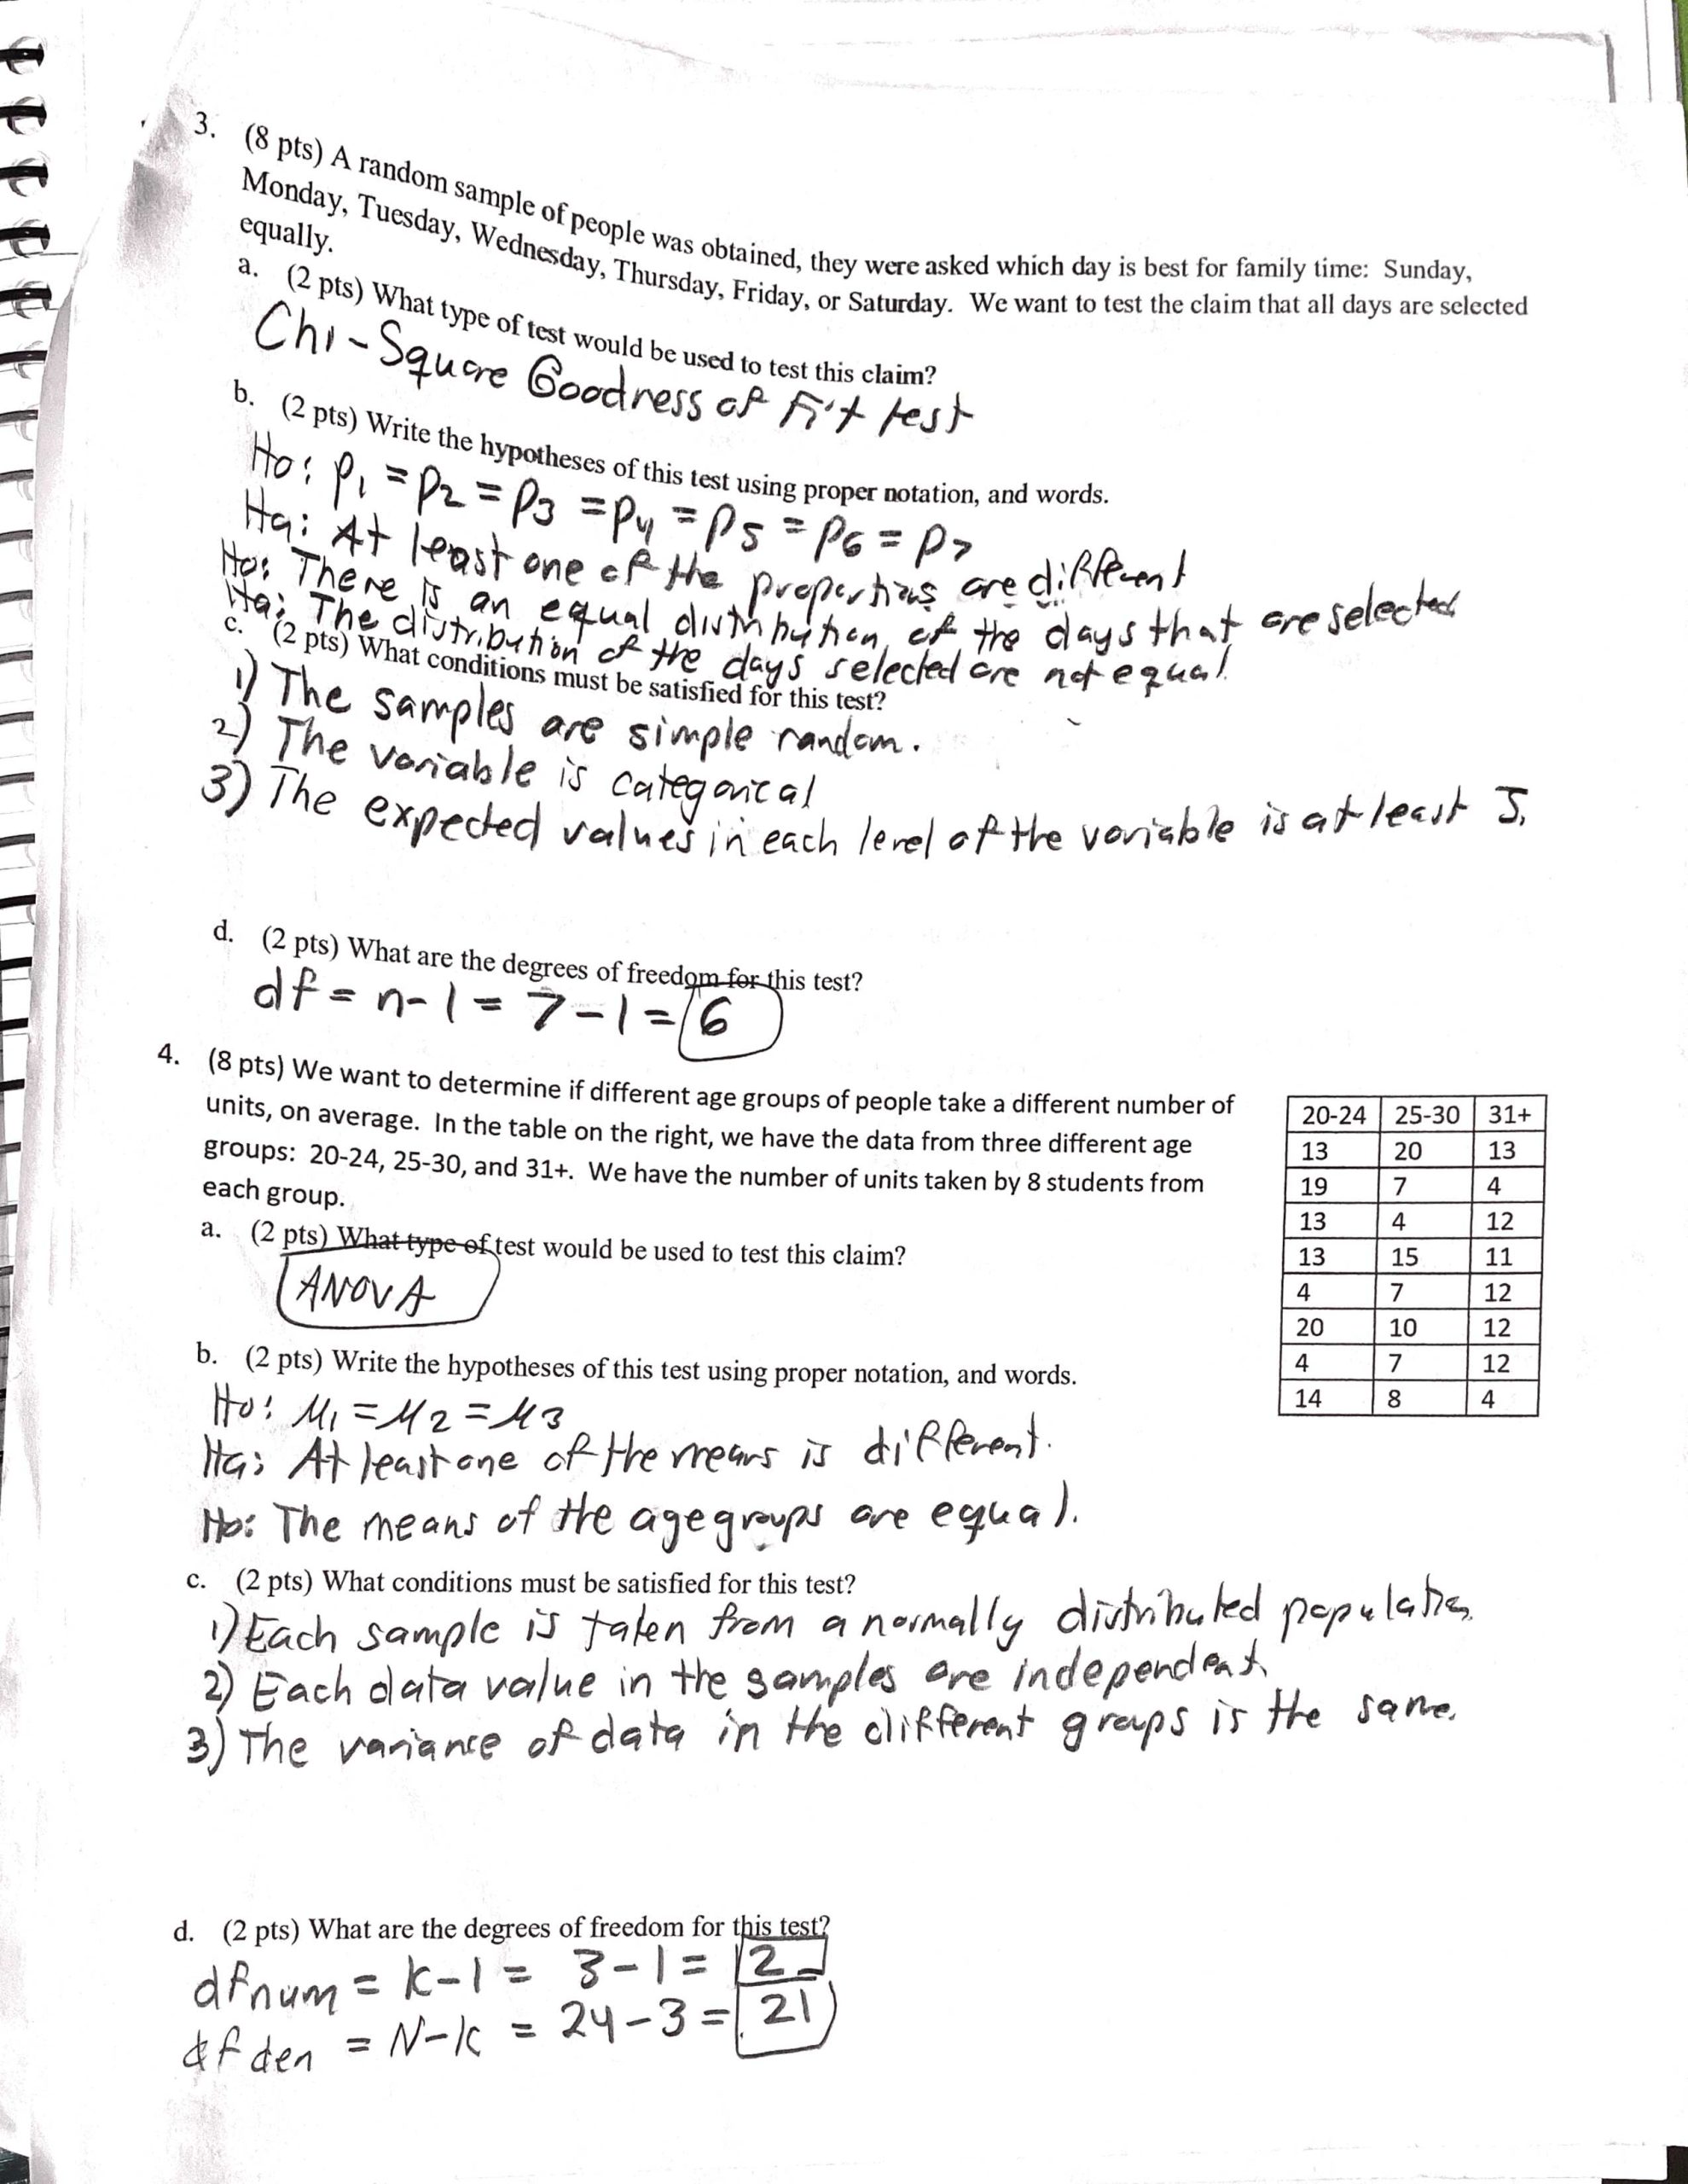 3. (8 pts) A random sample of people was obtained, they were asked which day is best for family time: Sunday,
Monday, Tuesday, Wednesday, Thursday, Friday, or Saturday. We want to test the claim that all days are selected
equally.
a. (2 pts) What type of test would be used to test this claim?
Chi-Square Goodness of Fit test
b. (2 pts) Write the hypotheses of this test using proper notation, and words.
Ho: p1 = p2 = p3 = p4 = p5 = p6 = p7
Ha: At least one of the proportions are different
Ho: There is an equal distribution of the days that are selected
Ha: The distribution of the days selected are not equal.
c. (2 pts) What conditions must be satisfied for this test?
1) The samples are simple random.
2) The variable is categorical
3) The expected values in each level of the variable is at least 5.
d. (2 pts) What are the degrees of freedom for this test?
df = n-1 = 7-1 = 6
4. (8 pts) We want to determine if different age groups of people take a different number of
units, on average. In the table on the right, we have the data from three different age
groups: 20-24, 25-30, and 31+. We have the number of units taken by 8 students from
each group.
20-24 25-30 31+
13 20 13
19 7 4
13 4 12
13 15 11
4 7 12
20 10 12
4 7 12
14 8 4
a. (2 pts) What type of test would be used to test this claim?
ANOVA
b. (2 pts) Write the hypotheses of this test using proper notation, and words.
Ho: μ1 = μ2 = μ3
Ha: At least one of the means is different.
Ho: The means of the age groups are equal.
c. (2 pts) What conditions must be satisfied for this test?
1) Each sample is taken from a normally distributed population.
2) Each data value in the samples are independent.
3) The variance of data in the different groups is the same.
d. (2 pts) What are the degrees of freedom for this test?
df num = k-1 = 3-1 = 2
df den = N-k = 24-3 = 21